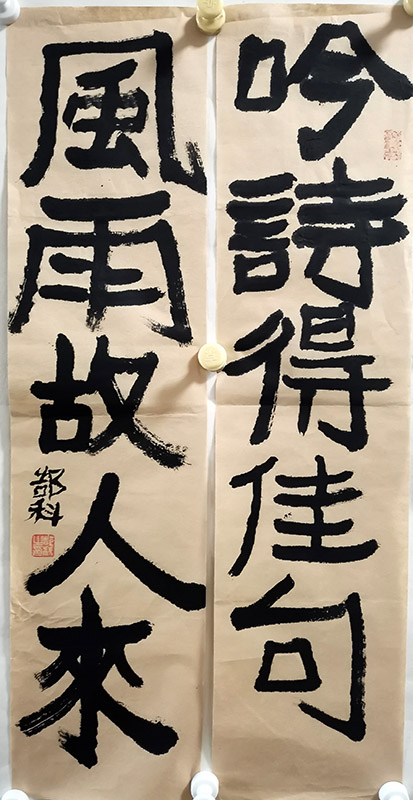 吟詩得佳句
風雨故人來
郜科